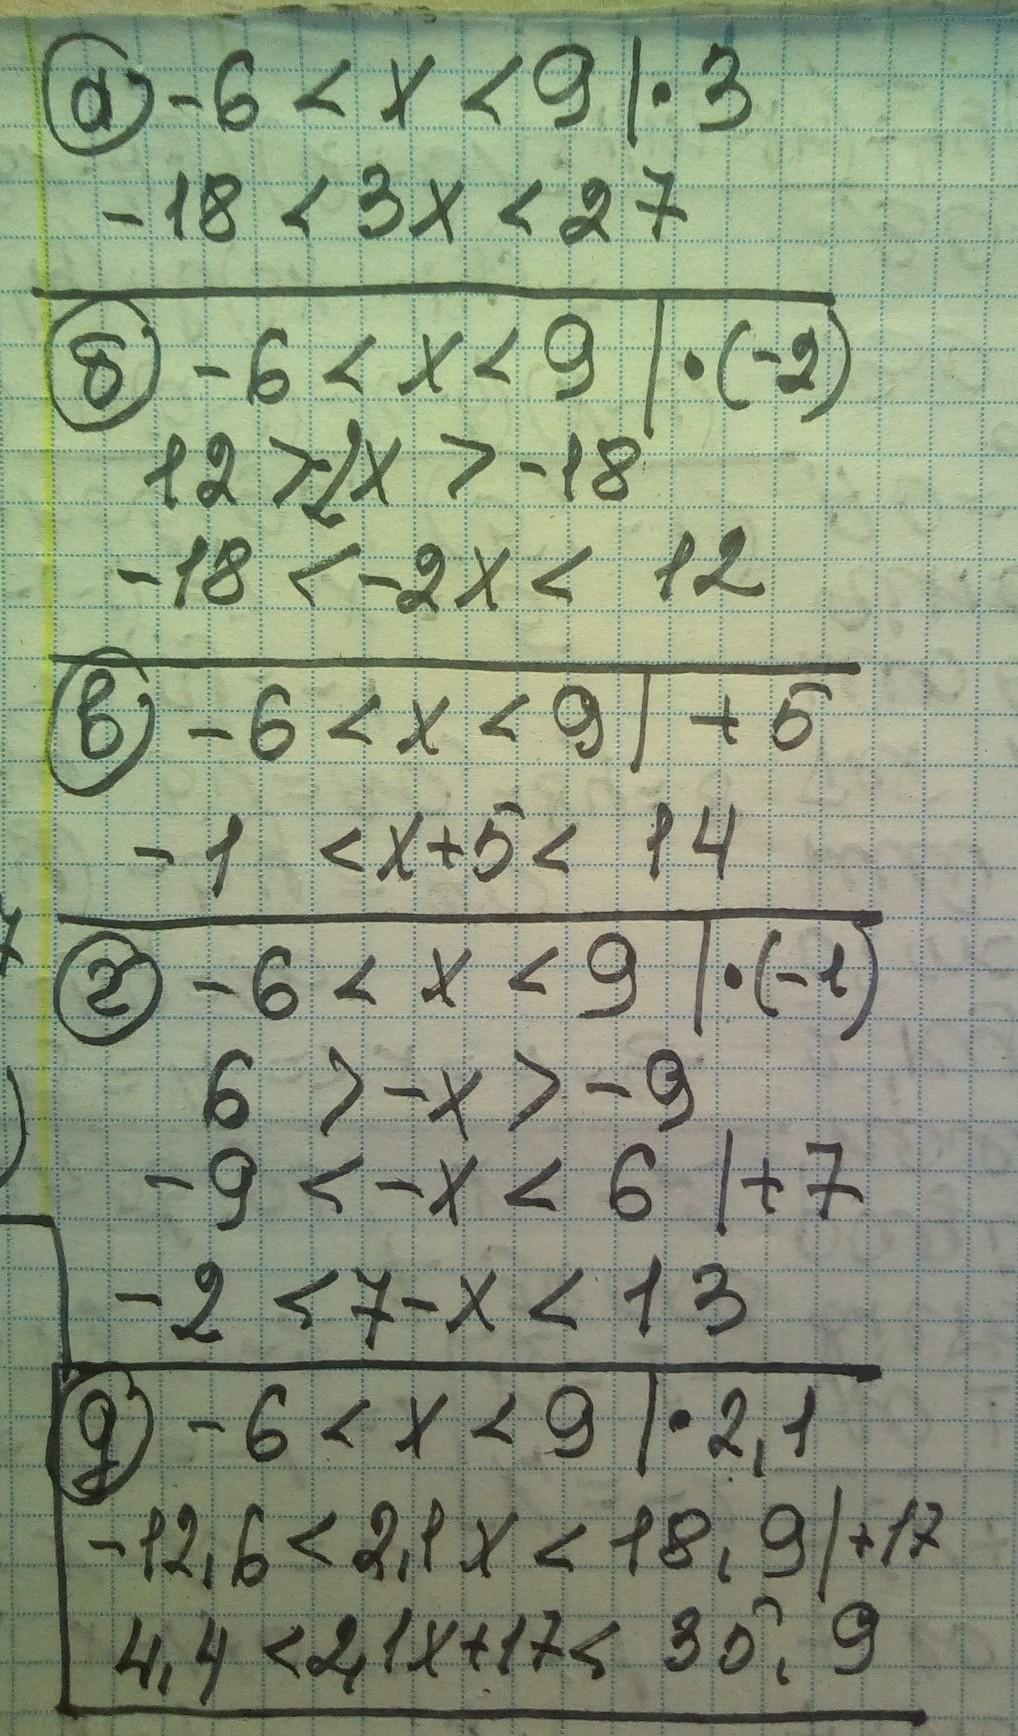 а) -6 < x < 9 | · 3
-18 < 3x < 27
б) -6 < x < 9 | · (-2)
12 > -2x > -18
-18 < -2x < 12
в) -6 < x < 9 | + 5
-1 < x+5 < 14
г) -6 < x < 9 | · (-1)
6 > -x > -9
-9 < -x < 6 | +7
-2 < 7-x < 13
д) -6 < x < 9 | · 2,1
-12,6 < 2,1x < 18,9 | +17
4,4 < 2,1x+17 < 35,9